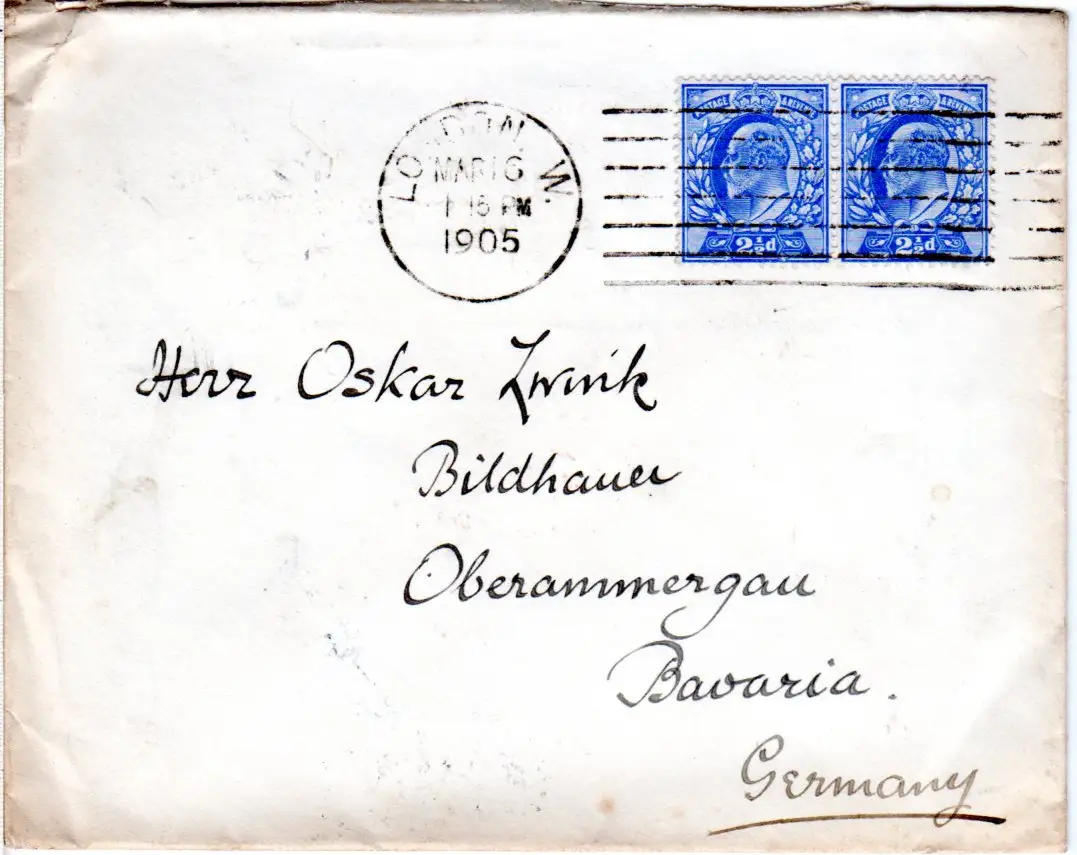 LONDON. W.
MAR 16
1 15 PM
1905
POSTAGE & REVENUE POSTAGE & REVENUE
2½d 2½d
Herr Oskar Zwink
Bildhauer
Oberammergau
Bavaria.
Germany